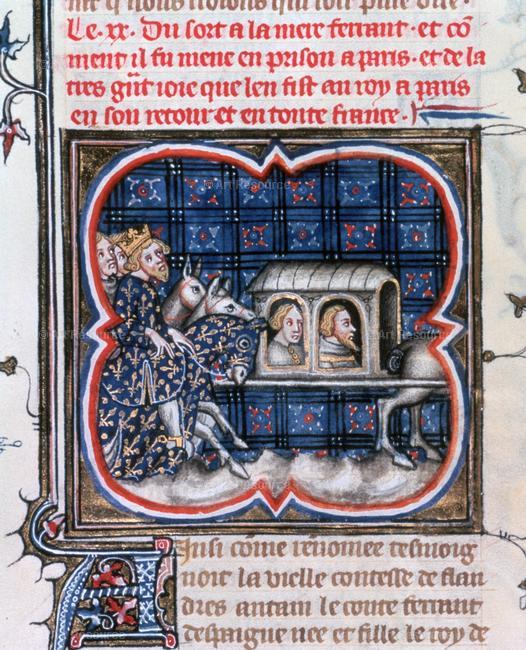 nt q nous lisions qui soit puie dite ·
Le · xx · Du sort a la mere ferrant · et cō
ment il fu mene en prison a paris · et de la
tres gñt ioie que len fist au roy a paris
en son retour et en toute france ·
Insi cōme renomee tesmoig
noit la vielle contesse de flan
dres antain le conte ferrant
despaigne nee et fille le roy de